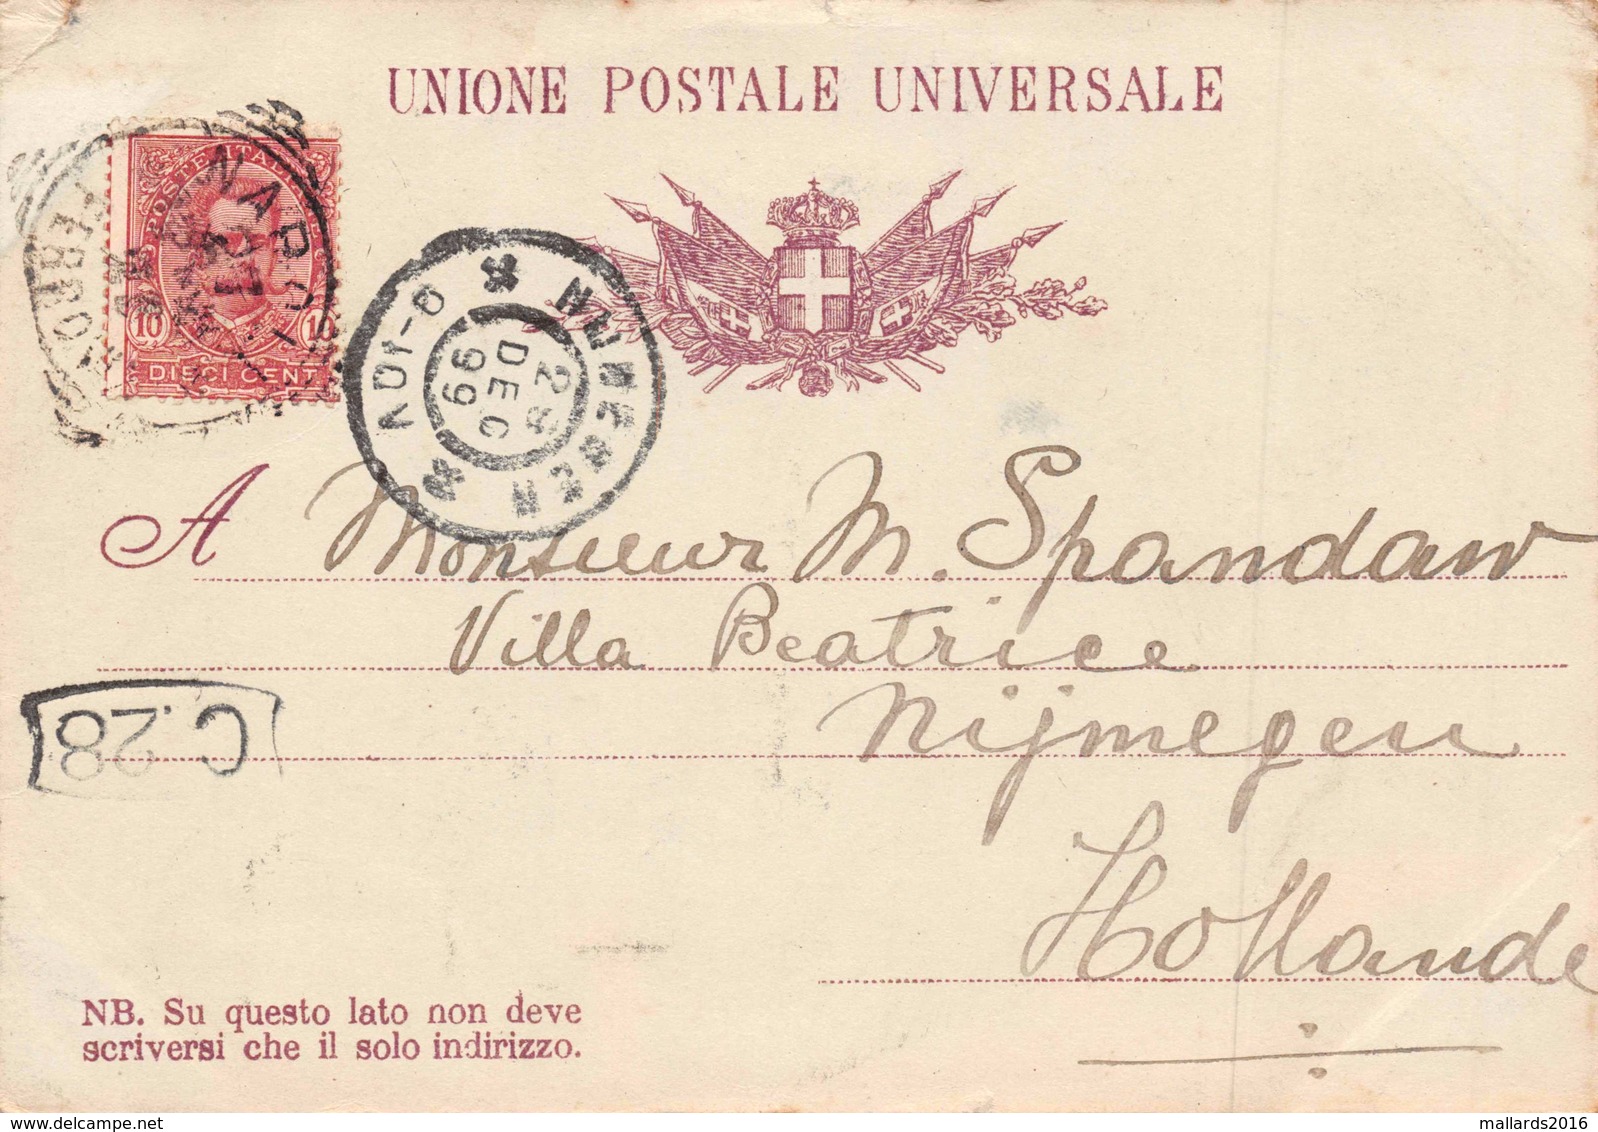 UNIONE POSTALE UNIVERSALE
POSTE ITALIANE
NAPOLI
FERROVIA
10 10
DIECI CENT
NIJMEGEN
9-10V
28
DEC
99
A Monsieur M. Spandaw
Villa Beatrice
Nijmegen
Hollande
C.28
NB. Su questo lato non deve
scriversi che il solo indirizzo.
mallards2016